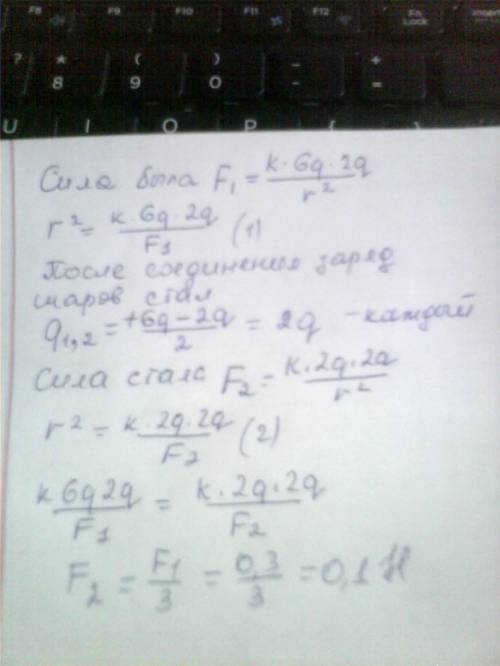 F8 F9 F10 F11 F12 Fn Lock Insert
? * 8 ( 9 ) 0 _ - + =
U I O P {
Сила была F₁ = k·6q·2q / r²
r² = k·6q·2q / F₁ (1)
После соединения заряд
шаров стал
q₁,₂ = +6q−2q / 2 = 2q - каждый
Сила стала F₂ = k·2q·2q / r²
r² = k·2q·2q / F₂ (2)
k6q2q / F₁ = k·2q·2q / F₂
F₂ = F₁ / 3 = 0,3 / 3 = 0,1 Н